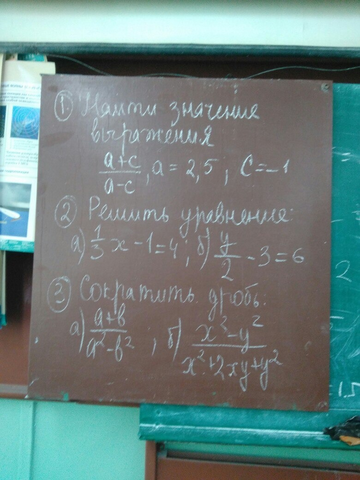 ① Найти значение
выражения
(a+c)/(a-c), a = 2,5; c = -1
② Решить уравнение:
а) 1/3 x - 1 = 4; б) y/2 - 3 = 6
③ Сократить дробь:
а) (a+b)/(a²-b²), б) (x²-y²)/(x²+2xy+y²)